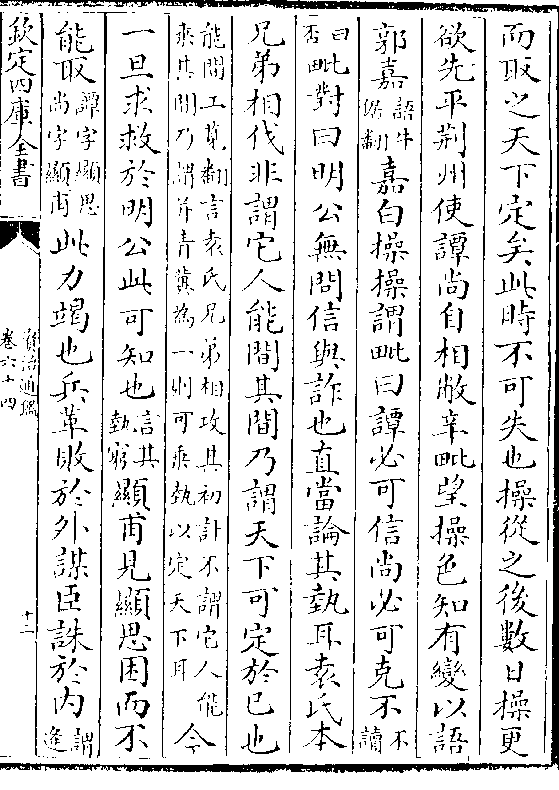 而取之天下定矣此時不可失也操從之後數日操更
欲先平荆州使譚尚自相敝辛毗望操色知有變以語
郭嘉語牛倨翻嘉白操操謂毗曰譚必可信尚必可克不不讀
曰否毗對曰明公無問信與詐也直當論其埶耳袁氏本
兄弟相伐非謂它人能間其間乃謂天下可定於已也
能間工莧翻言袁氏兄弟相攻其初計不謂它人能乘其間乃謂并青冀為一則可乘埶以定天下耳今
一旦求救於明公此可知也言其埶窮顯甫見顯思困而不
能取譚字顯思尚字顯甫此力竭也兵革敗於外謀臣誅於内謂逄
欽定四庫全書
資治通鑑
卷六十四
十二